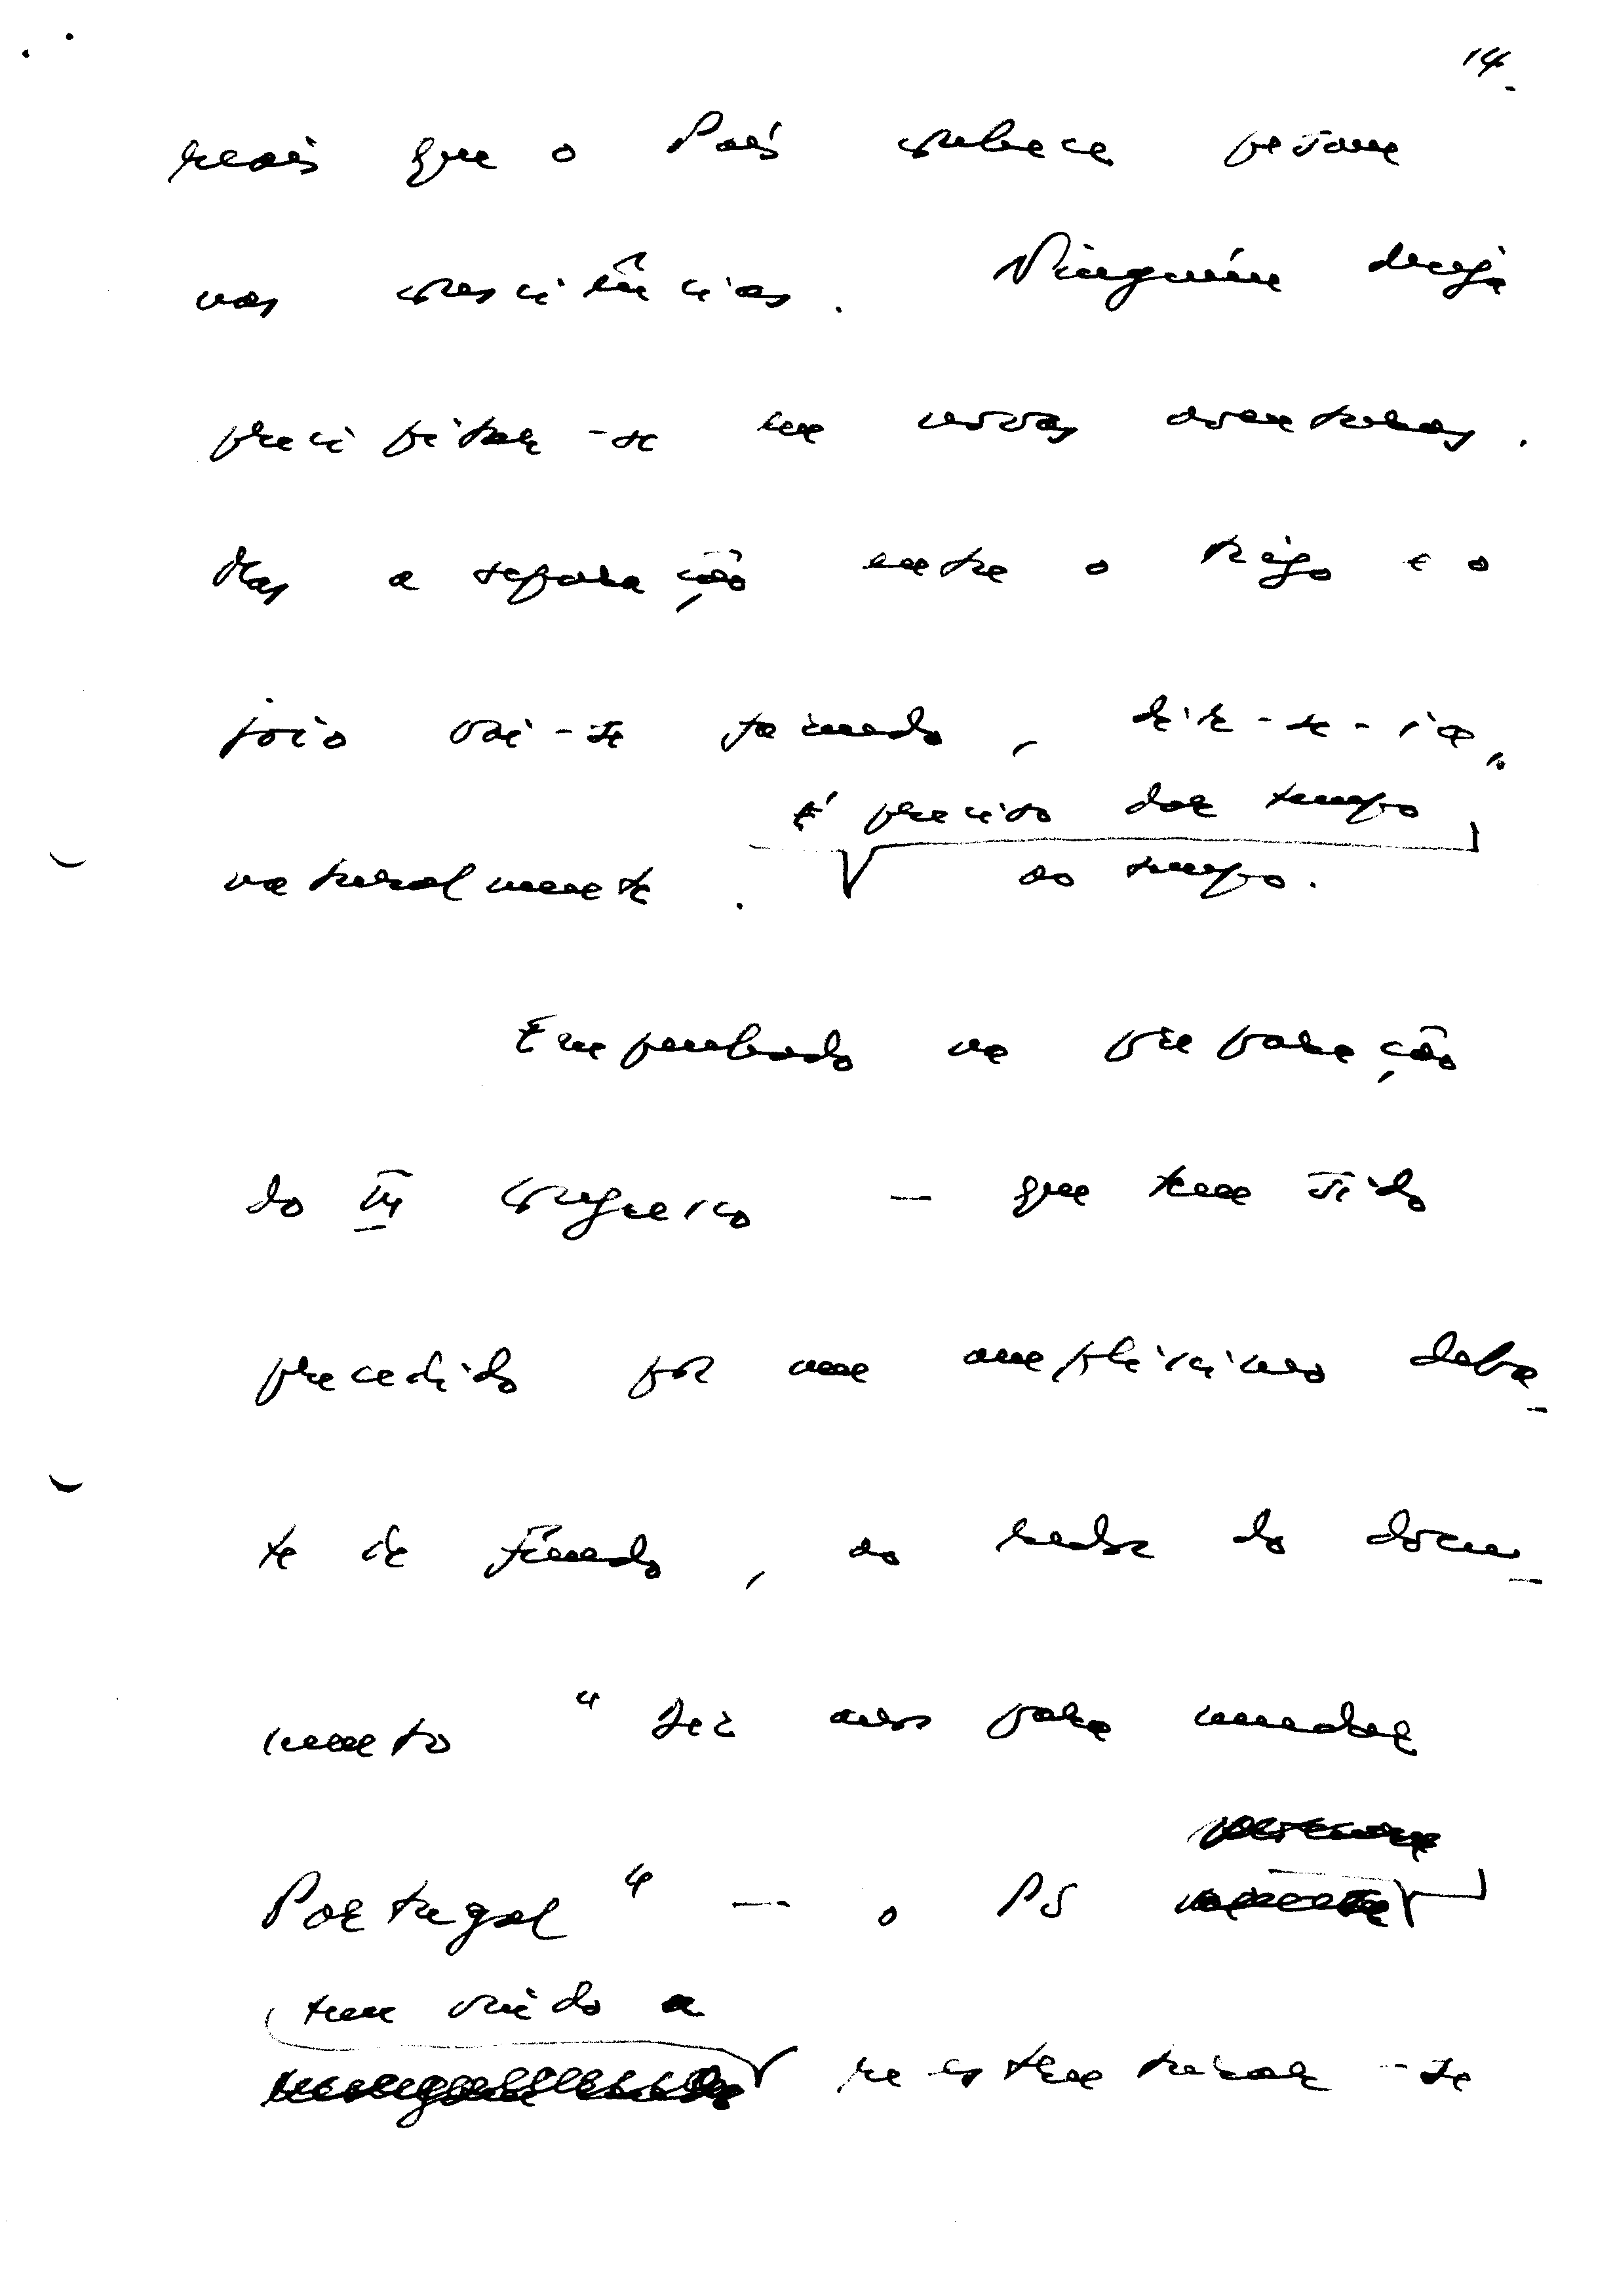 14.
reais que o País conhece pesam
nas consciências. Ninguém deseja
precipitar-se em novas aventuras.
Mas a separação entre o trigo e o
joio vai-se fazendo, dir-se-ia,
É preciso dar tempo
naturalmente. ao tempo.
Empenhado na preparação
do III Congresso — que tem sido
precedido por um amplíssimo deba-
te de fundo, ao redor do docu-
mento "Dez anos para mudar
Portugal" — o PS
tem vindo a
reestruturar-se